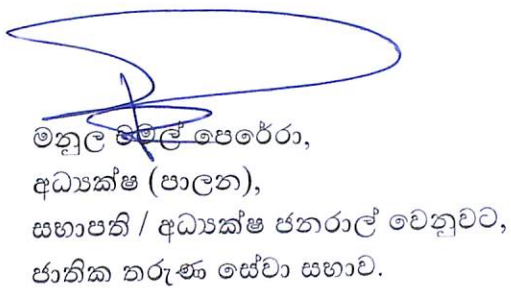 මනුල චමල් පෙරේරා,
අධ්‍යක්ෂ (පාලන),
සභාපති / අධ්‍යක්ෂ ජනරාල් වෙනුවට,
ජාතික තරුණ සේවා සභාව.